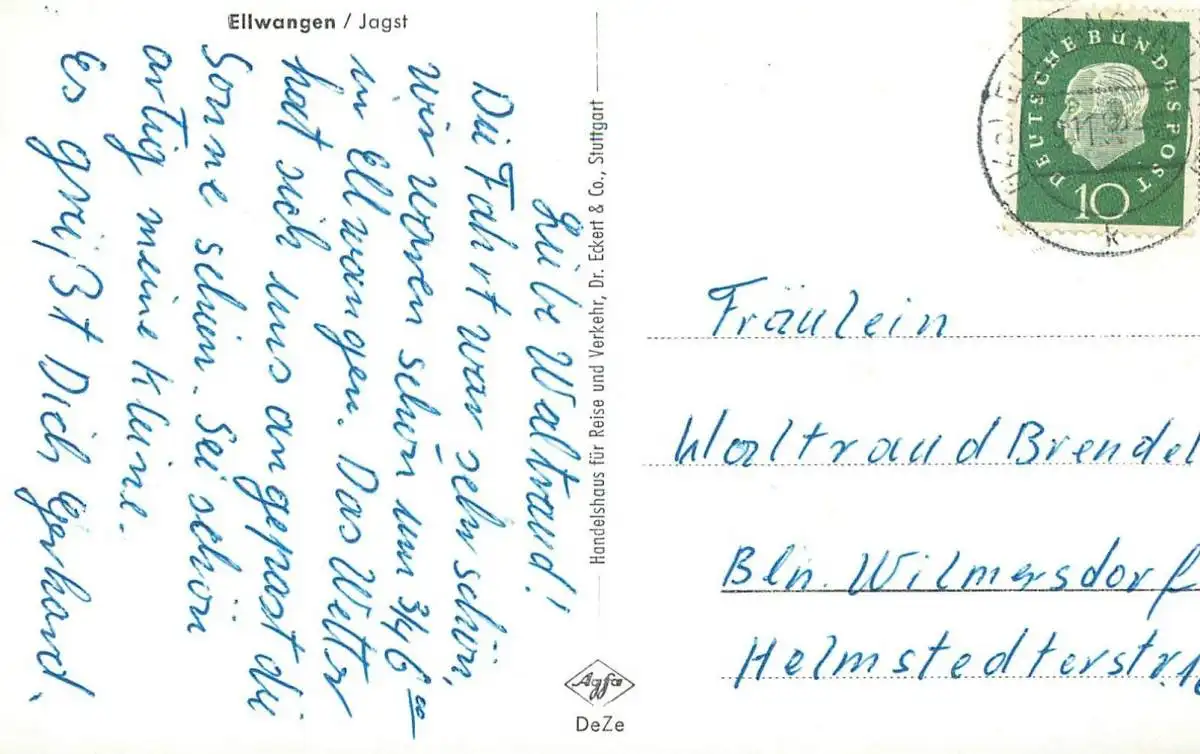 Ellwangen / Jagst
Liebe Waltraud!
Die Fahrt war sehr schön,
wir waren schon um 3/4 6 00
in Ellwangen. Das Wetter
hat sich uns angepast die
Sonne schien. Sei schön
artig meine kleine.
Es grüßt Dich Gerhard.
Handelshaus für Reise und Verkehr, Dr. Eckert & Co., Stuttgart
Agfa
DeZe
DEUTSCHE BUNDESPOST
10
k
Fräulein
Waltraud Brendel
Bln. Wilmersdorf
Helmstedterstr.